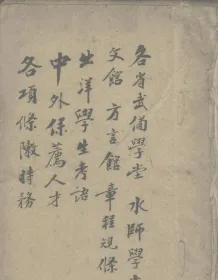 各省武備學堂 水師學
文館 方言館 章程規條
出洋學生考語
中外保薦人才
各項條陳時務